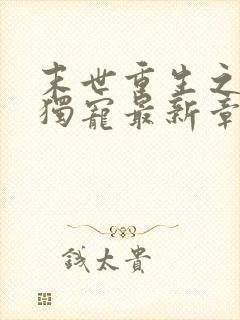 末世重生之
獨寵最新章
錢太貴